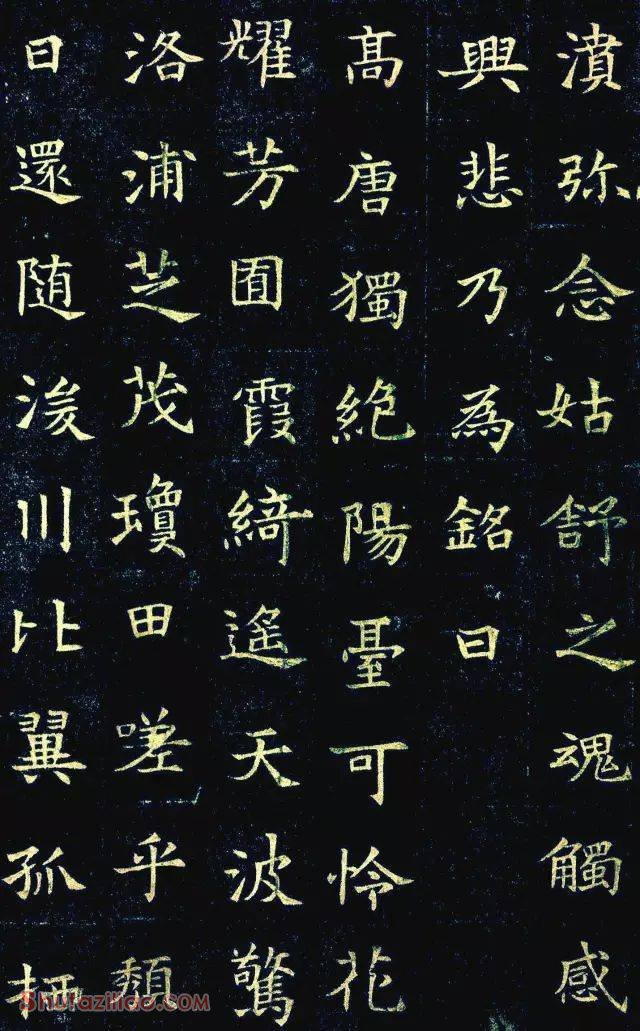 濆弥念姑舒之魂觸感
興悲乃為銘曰
髙唐獨絶陽臺可怜花
耀芳囿霞綺遥天波驚
洛浦芝茂瓊田嗟乎頹
日還随浚川比翼孤栖
Shufaziliao.com